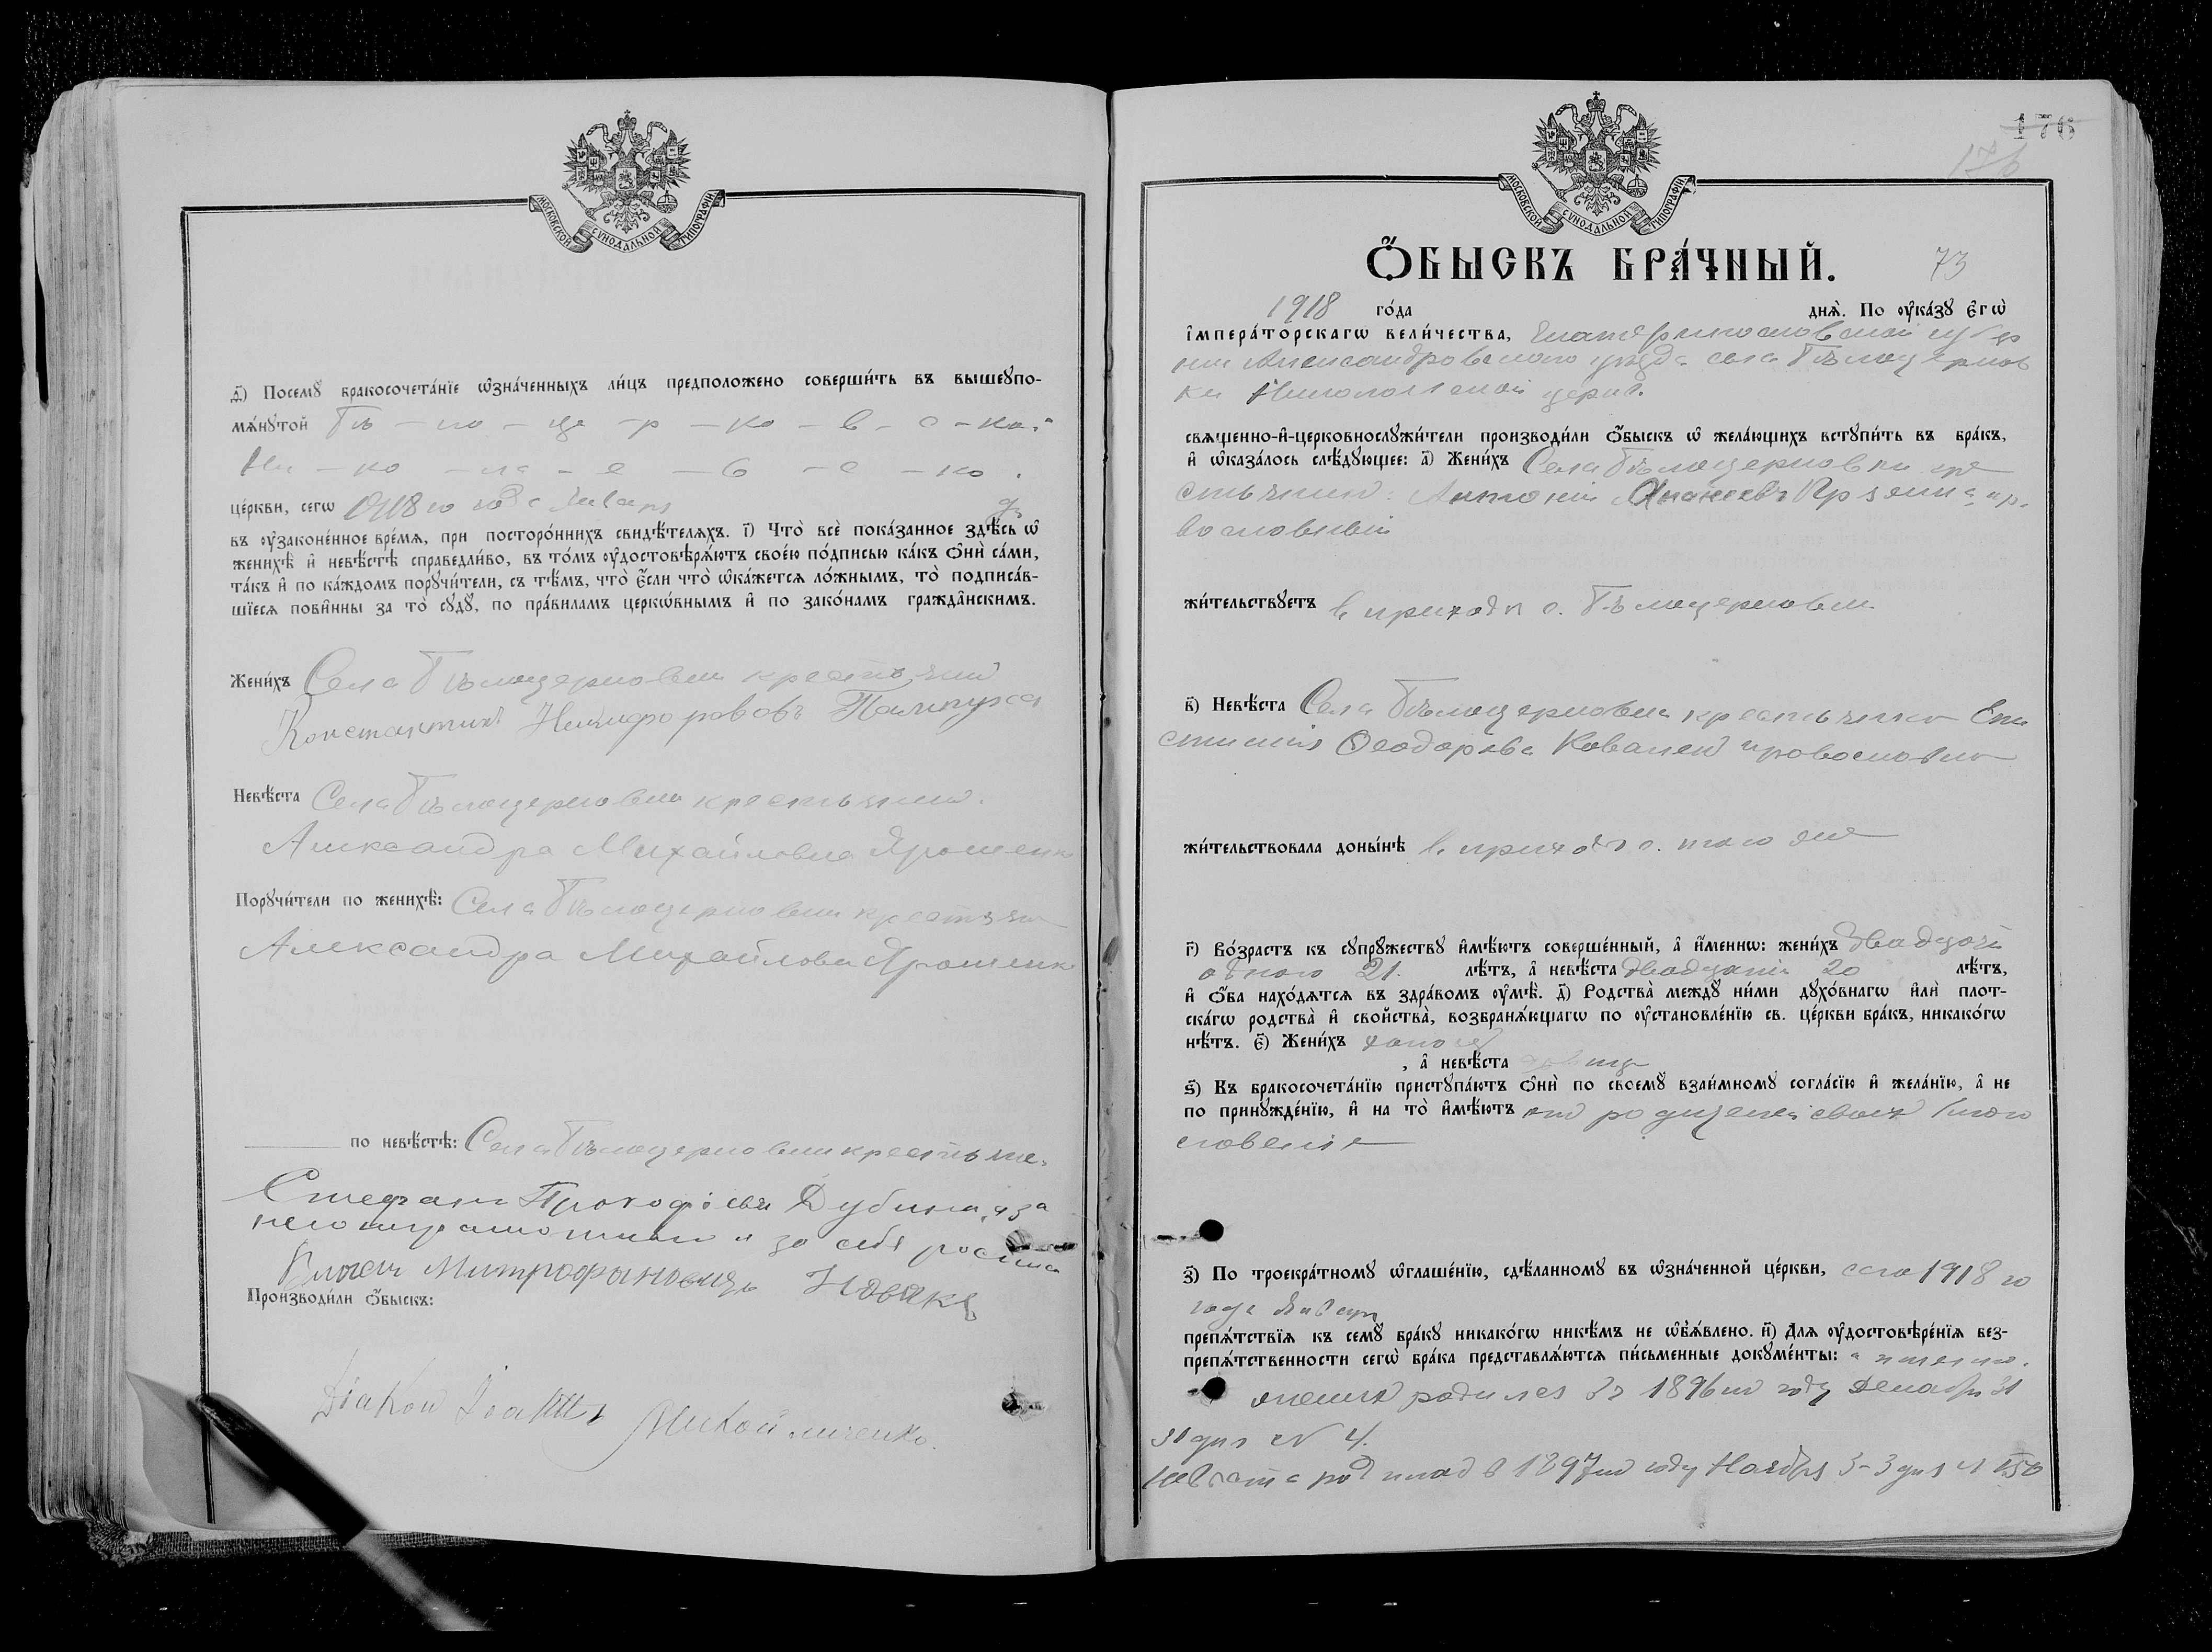 МОСКОВСКОЙ СУНОДАЛЬНОЙ ТИПОГРАФІИ
д҃і) Посемꙋ бракосочета́нїе ѡ҆зна́ченныхъ ли́цъ предположено соверши́ть въ вышеꙋпо-
мѧ́нꙋтой Бѣ - ло - це - р - ко - в - с - кой
Ни - ко - ла - е - в - с - ко
це́ркви, сегѡ 1918 го года Январ
въ оу҆законе́нное вре́мѧ, при посторо́ннихъ свидѣ́телѧхъ. і҃) Что̀ всѐ пока́занное здѣ́сь ѡ҆
женихѣ̀ и҆ невѣ́стѣ справедли́во, въ то́мъ оу҆достовѣрѧ́ютъ свое́ю по́дписью ка́къ ѻ҆нѝ са́ми,
та́къ и҆ по ка́ждомъ порꙋчи́тели, съ тѣ́мъ, что̀ є҆́сли что̀ ѡ҆ка́жетсѧ ло́жнымъ, то̀ подписа́в-
шїесѧ пови̂нны за то̀ сꙋдꙋ̀, по пра́виламъ церкѡ́внымъ и҆ по зако́намъ гражда̂нскимъ.
Жени́хъ Села Бѣлоцерковки крестьянин
Константинъ Никифоровъ Палипуха
Невѣ́ста Села Бѣлоцерковки крестьянка
Александра Михайловна Ярошенк
Порꙋчи́тели по женихѣ̀: Села Бѣлоцерковки крестьян
Александра Михайлова Ярошенк
по невѣ́стѣ: Села Бѣлоцерковки крестьяне
Стефанъ Прокофіевъ Дубина, а за
него неграмотнаго и за себя росписа
Митрофановичъ Новакъ
Производи́ли ѻ҆́быскъ:
Діаконъ Іоаннъ Миколайченко.
МОСКОВСКОЙ СУНОДАЛЬНОЙ ТИПОГРАФІИ
176
176
Ѻ҆́БЫСКЪ БРА́ЧНЫЙ. 73
1918 го́да днѧ̀. По оу҆ка́зꙋ є҆гѡ̀
і҆мпера́торскагѡ вели́чества, Екатеринославской губер
ніи Александровского уезда села Бѣлоцерков
ки Николаевской церкв.
свѧще́нно-и҆-церковнослꙋжи́тели производи́ли ѻ҆́быскъ ѡ҆ жела́ющихъ встꙋпи́ть въ бра́къ,
и҆ ѡ҆каза́лось слѣ́дꙋющее: а҃) Жени́хъ Села Бѣлоцерковки кре
стьянин: Антоній пр.
вославный
жи́тельствꙋетъ в приходѣ с. Бѣлоцерковки
в҃) Невѣ́ста Села Бѣлоцерковки крестьянка Епи
стимія Ѳеодорова Ковален православна
жи́тельствовала доны́нѣ в приходѣ с. того же
г҃) Во́зрастъ къ сꙋпрꙋ́жествꙋ и҆мѣ́ютъ соверше́нный, а҆ и҆́меннѡ: жени́хъ двадцати
одного 21. лѣ́тъ, а҆ невѣ́ста двадцати 20 лѣ́тъ,
и҆ ѻ҆́ба нахо́дѧтсѧ въ здра́вомъ оу҆мѣ̀. д҃) Родства̀ междꙋ̀ ни́ми дꙋхо́внагѡ и҆лѝ плот-
ска́гѡ родства̀ и҆ свойства̀, возбранѧ́ющагѡ по оу҆становле́нїю св. це́ркви бра́къ, никако́гѡ
нѣ́тъ. є҃) Жени́хъ холост
, а҆ невѣ́ста девица
ѕ҃) Къ бракосочета́нїю пристꙋпа́ютъ ѻ҆нѝ по своемꙋ̀ взаи́мномꙋ согла́сїю и҆ жела́нїю, а҆ не
по принꙋжде́нїю, и҆ на то̀ и҆мѣ́ютъ от родителей своих благо
словеніе
з҃) По троекра́тномꙋ ѡ҆глаше́нїю, сдѣ́ланномꙋ въ ѡ҆зна́ченной це́ркви, сего 1918 го
года Январ
препѧ́тствїѧ къ семꙋ̀ бра́кꙋ никако́гѡ никѣ́мъ не ѡ҆б̾ѧ́влено. и҃) Длѧ оу҆достовѣре́нїѧ без-
препѧ́тственности сегѡ̀ бра́ка представлѧ́ютсѧ пи́сьменные докꙋме́нты: а именно.
жених родился въ 1896 году декабря 31
31 дня № 4.
невеста родилась в 1897 году Ноября 3-3 дня №